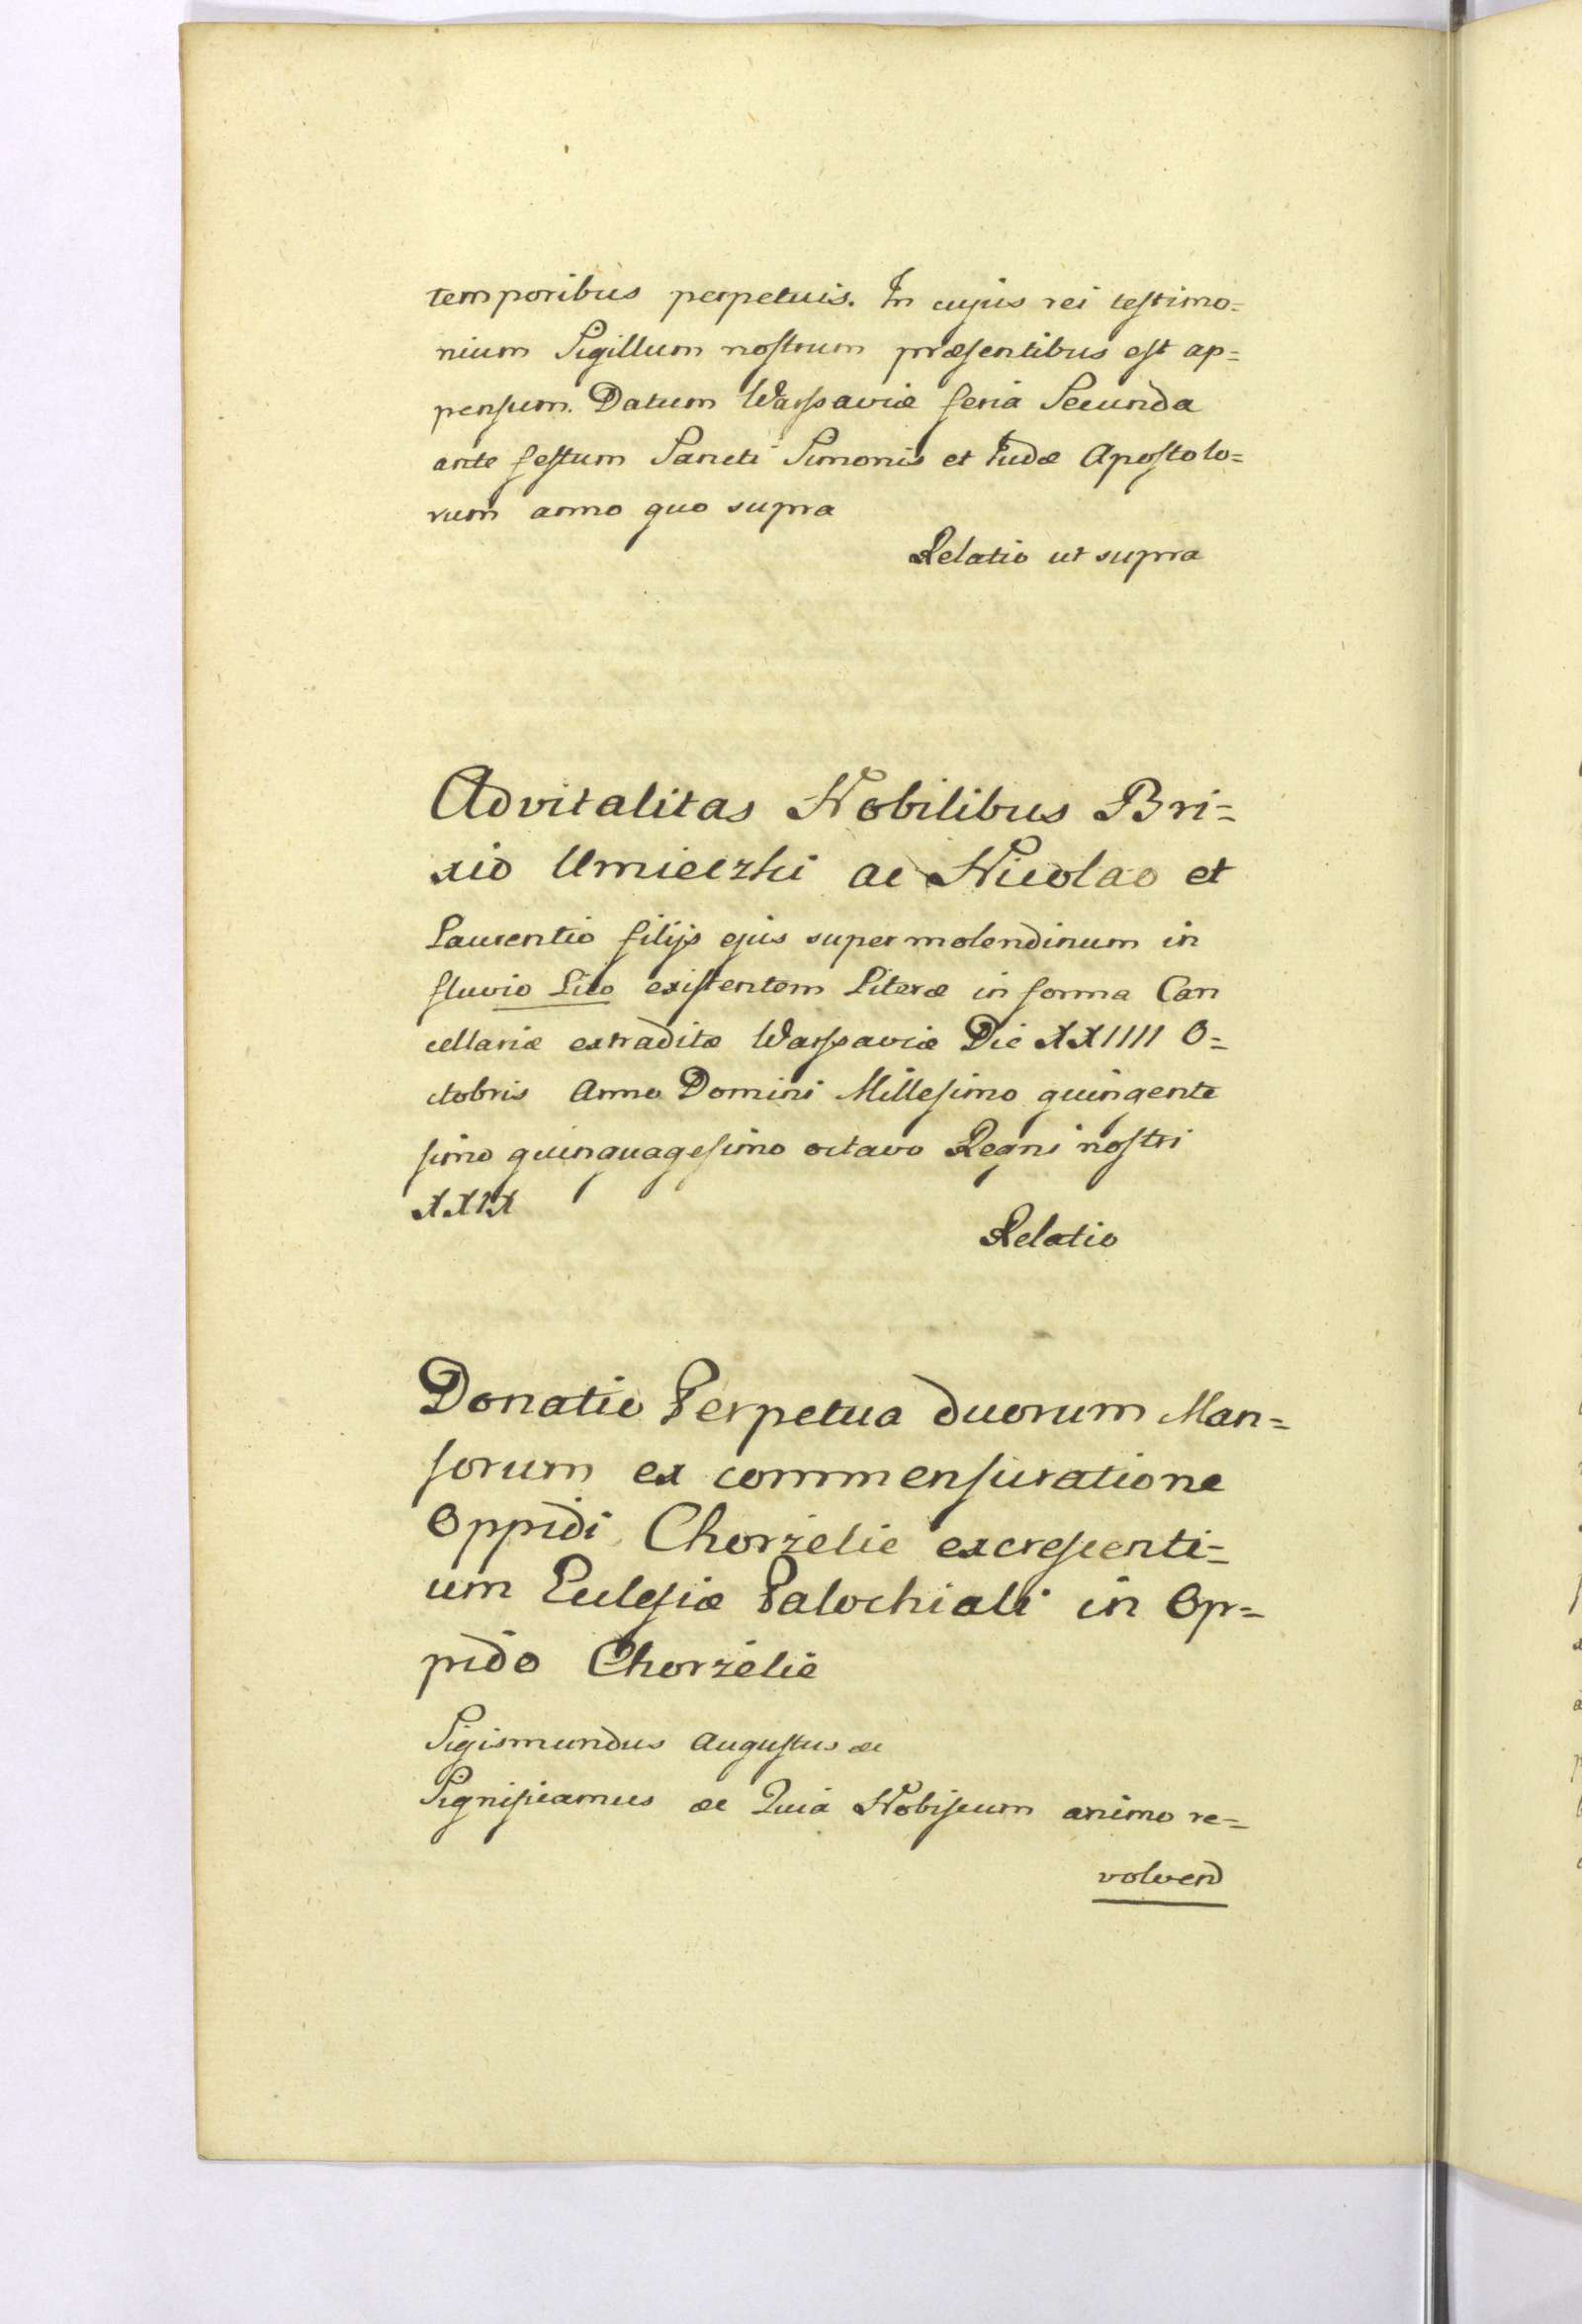 temporibus perpetuis. In cujus rei testimo=
nium Sigillum nostrum præsentibus est ap=
pensum. Datum Warssaviæ feria Secunda
ante festum Sancti Simonis et Judæ Apostolo=
rum anno quo supra
Relatio ut supra
Advitalitas Nobilibus Bri=
xio Umieczki ac Nicolao et
Laurentio filijs ejus super molendinum in
fluvio Lico existentem Literæ in forma Can
cellariæ extraditæ Warssaviæ Die XXIIII O=
ctobris Anno Domini Millesimo quingente
simo quinquagesimo octavo Regni nostri
XXIX
Relatio
Donatio Perpetua duorum Man=
sorum ex commensuratione
Oppidi Chorzelie excrescenti=
um Eclesiæ Palochiali in Op=
pido Chorzelie
Sigismundus Augustus &c
Significamus &c Quia Nobiscum animo re=
volvend